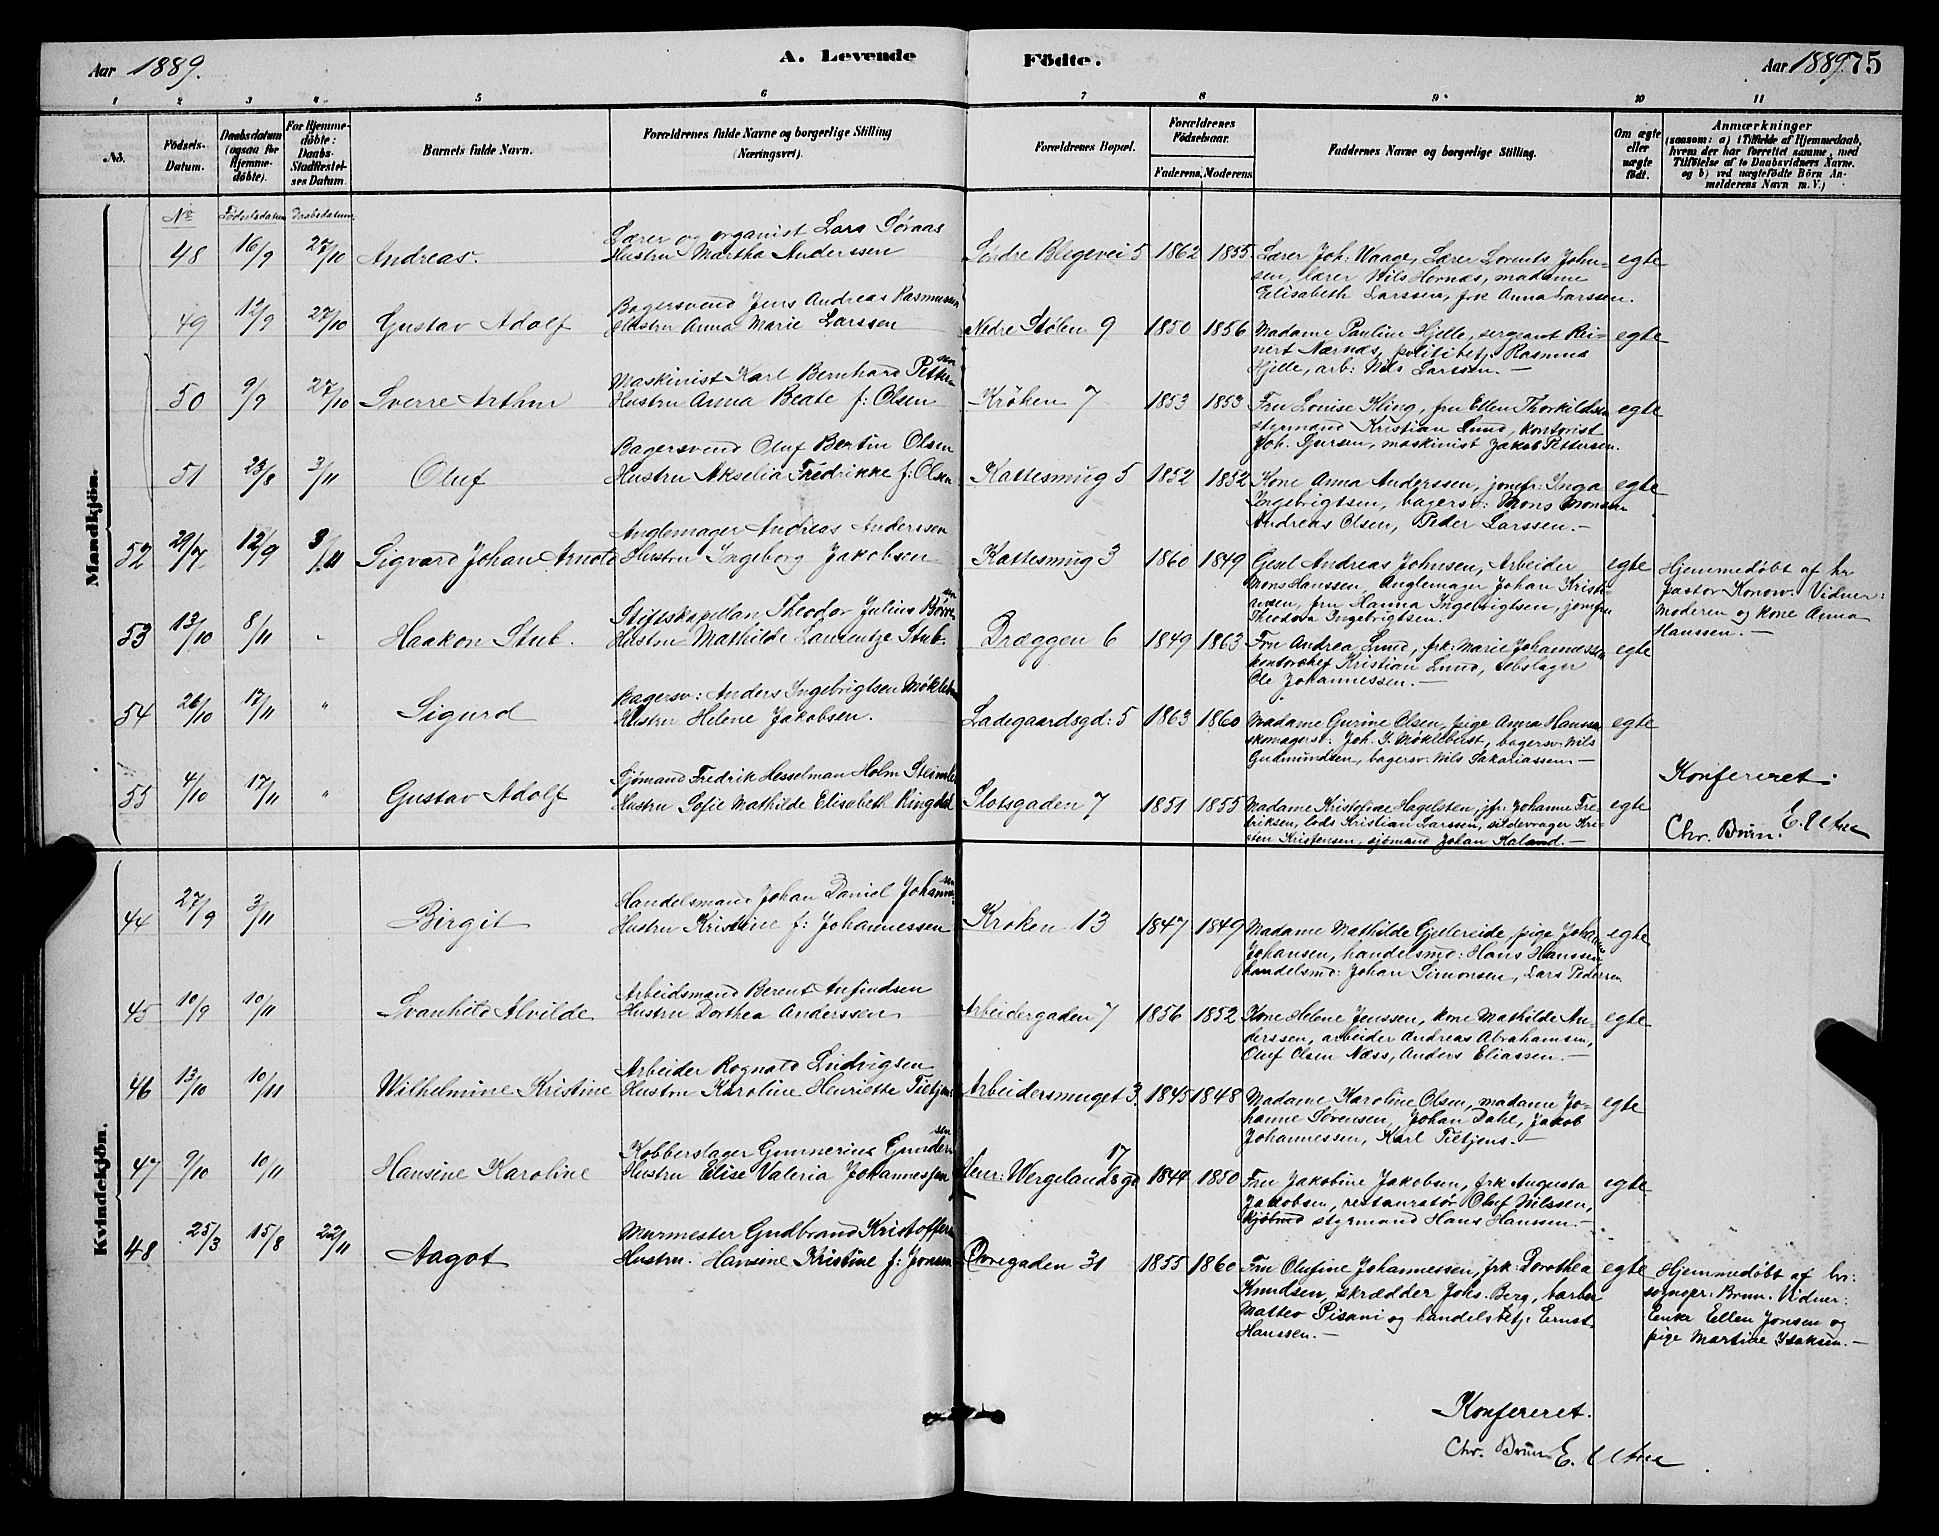 Aar 1889.
A. Levende Födte.
Aar 1889. 75
1 2 3 4 5 6 7 8 9 10 11
No.
Födsels-Datum.
Daabsdatum (ogsaa for Hjemme-döbte).
For Hjemme-döbte: Daabs-Stadfæstel-ses Datum.
Barnets fulde Navn.
Forældrenes fulde Navne og borgerlige Stilling (Næringsvei).
Forældrenes Bopæl.
Forældrenes Födselsaar.
Faderens. Moderens.
Faddernes Navne og borgerlige Stilling.
Om ægte eller uægte født.
Anmærkninger
(saasom: a) i Tilfælde af Hjemmedaab, hvem der har forrettet samme, med Tilföielse af to Daabsvidners Navne. og b) ved uægtefödte Börn An-melderens Navn m. V.)
Mandkjön.
No Födselsdatum Daabsdatum
48 16/9 27/10 Andreas.
Lærer og organist Lars Søraas
Hustru Martha Anderssen
Søndre Blegevei 5 1862 1855
Lærer Joh: Waage, Lærer Lorents John-
sen, lærer Nils Hernæs, madame
Elisabeth Larssen, frk Anna Larssen.
egte
49 12/9 27/10 Gustav Adolf
Bagersvend Jens Andreas Rasmussen
Hustru Anna Marie Larssen
Nedre Stølen 9 1850 1856
Madame Pauline Hjelle, sergeant Rei-
nert Nærnæs, politibetj. Rasmus
Hjelle, arb: Nils Larssen. —
egte
50 9/9 27/10 Sverre Arthur
Maskinist Karl Bernhard Petter-
sen
Hustru Anna Beate f: Olsen
Krøken 7 1853 1853
Fru Louise Kling, fru Ellen Thorkildsen
styrmand Kristian Lund, kontorist
Joh. Gursen, maskinist Jakob Pettersen.
egte
51 23/8 3/11 Oluf
Bagersvend Oluf Bertin Olsen
Hustru Akselia Fredrikke f: Olsen
Kattesmug 5 1852 1852
Kone Anna Anderssen, jomfr: Inga
Ingebrigtsen, bagersv: Mons Monsen
Andreas Olsen, Peder Larssen. —
egte
52 29/7 12/9 3/11 Sigvard Johan Arnold
Anglemager Andreas Anderssen
Hustru Ingeborg Jakobsen
Kattesmug 3 1860 1849
Gesel Andreas Johnsen, Arbeider
Mons Hanssen, Anglemager Johan Kristi-
ansen, fru Hanna Ingebrigtsen, jomfru
Theodora Ingebrigtsen.
egte
Hjemmedøbt af hr
pastor Konow. Vidner:
moderen og kone Anna
Hanssen. —
53 13/10 8/11 " Haakon Stub.
Stiftskapellan Theodor Julius Børre-
sen
Hustru Mathilde Laurentze Stub.
Dræggen 6 1849 1863
Fru Andrea Lund, frk: Marie Johannessen
kontorchef Kristian Lund, rebslager
Ole Johannessen. —
egte
54 26/10 17/11 " Sigurd
Bagersv: Anders Ingebrigtsen Møklebu
Hustru Helene Jakobsen.
Ladegaardsgd: 5 1863 1860
Madame Gurine Olsen, pige Anna Hanssen
skomagersv: Joh. I. Møklebust, bagersv: Nils
Gudmundsen, bagersv: Nils Sakariassen —
egte
55 4/10 17/11 " Gustav Adolf
Sjømand Fredrik Hesselman Holm Steimler
Hustru Sofie Mathilde Elisabeth Ringdal
Slotsgaden 7 1851 1855
Madame Kristofine Hagelsten, jfr: Johanne Fre-
riksen, lods Kristian Larssen, sildevrager Kri-
sten Kristensen, sjømand Johan Kaland. —
egte
Konfereret.
Chr. Brun. E. Utne
Kvindekjön.
44 27/9 3/11 Birgit
Handelsmand Johan Daniel Johannes-
sen
Hustru Kristine f: Johannessen
Krøken 13 1847 1849
Madame Mathilde Gjellereide, pige Johanne
Johansen, handelsmd: Hans Hanssen,
handelsmd: Johan Simonsen, Lars Pedersen
egte
45 10/9 10/11 Svanhild Alvilde
Arbeidsmand Berent Anfindsen
Hustru Dorthea Anderssen
Arbeidergaden 7 1856 1852
Kone Helene Jenssen, kone Mathilde An-
derssen, arbeider Andreas Abrahamsen,
Oluf Olsen Næss, Anders Eliassen. —
egte
46 13/10 10/11 Wilhelmine Kristine
Arbeider Rognald Ludvigsen
Hustru Karoline Henriette Tietjens
Arbeidersmuget 3. 1845 1848
Madame Karoline Olsen, madame Jo-
hanne Sørensen, Johan Dahl, Jakob
Johannessen, Karl Tietjens. —
egte
47 9/10 10/11 Hansine Karoline
Kobberslager Gunnerius Gunder-
sen
Hustru Elise Valeria Johannessen
Henr: Wergelandsgd 17 1844 1850
Fru Jakobine Jakobsen, frk Augusta
Jakobsen, restauratør Oluf Nilssen,
styrmand Hans Hanssen. —
egte
48 25/3 15/8 22/11 Aagot
Murmester Gudbrand Kristoffers
Hustru. Hansine Kristine f: Jonsen
Øvregaden 31 1855 1860
Fru Olufine Johannessen, frk: Dorothea
Knudsen, skrædder Johs. Berg, barber
Matteo Pisani og handelsbetj: Ernst
Hanssen. —
egte
Hjemmedøbt af hr:
sognepr: Brun. Vidner:
Enke Ellen Jonsen og
pige Martine Isaksen. —
Konfereret.
Chr. Brun E. Utne